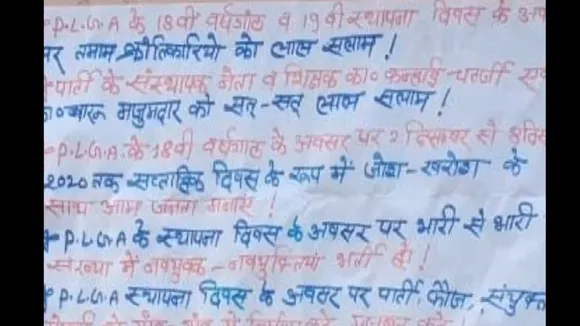 P.L.G.A के 18वीं वर्षगांठ व 19वीं स्थापना दिवस के अव
पर तमाम क्रांतिकारियों को लाल सलाम!
पार्टी के संस्थापक नेता व शिक्षक का० कन्हाई चटर्जी एवं
का० चारू मजुमदार को सत्-सत् लाल सलाम!
P.L.G.A. के 18वीं वर्षगांठ के अवसर पर 2 दिसम्बर से 8 दिस
2020 तक सप्ताहिक दिवस के रूप में जोश-खरोश के
साथ आम जनता मनाएं!
P.L.G.A के स्थापना दिवस के अवसर पर भारी से भारी
संख्या में नवयुवक-नवयुवतियां भर्ती हों!
P.L.G.A स्थापना दिवस के अवसर पर पार्टी, फौज, संयुक्त